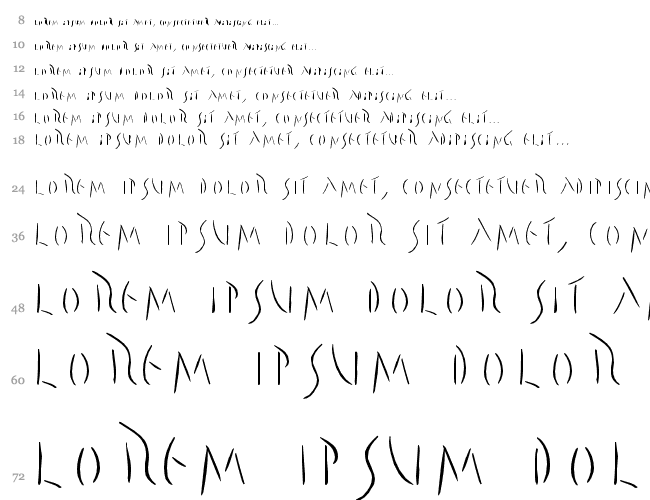 8 Lorem ipsum dolor sit amet, consectetuer adipiscing elit...
10 Lorem ipsum dolor sit amet, consectetuer adipiscing elit...
12 Lorem ipsum dolor sit amet, consectetuer adipiscing elit...
14 Lorem ipsum dolor sit amet, consectetuer adipiscing elit...
16 Lorem ipsum dolor sit amet, consectetuer adipiscing elit...
18 Lorem ipsum dolor sit amet, consectetuer adipiscing elit...
24 Lorem ipsum dolor sit amet, consectetuer adipiscin
36 Lorem ipsum dolor sit amet, con
48 Lorem ipsum dolor sit a
60 Lorem ipsum dolor
72 Lorem ipsum dol